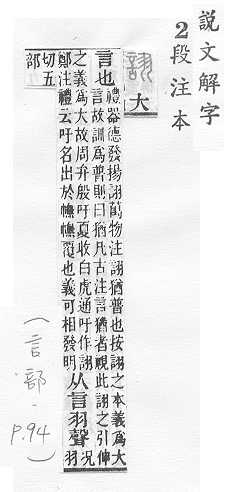 說文解字
2段注本
詡 大
言也
禮器德發揚詡萬物注詡猶普也按詡之本義爲大
言故訓爲普則曰猶凡古注言猶者視此詡之引伸
之義爲大故周弁殷吁夏收白虎通吁作詡
鄭注禮云吁名出於幠幠覆也義可相發明
从言羽聲
況
羽
切五
部
(言部·P.94)